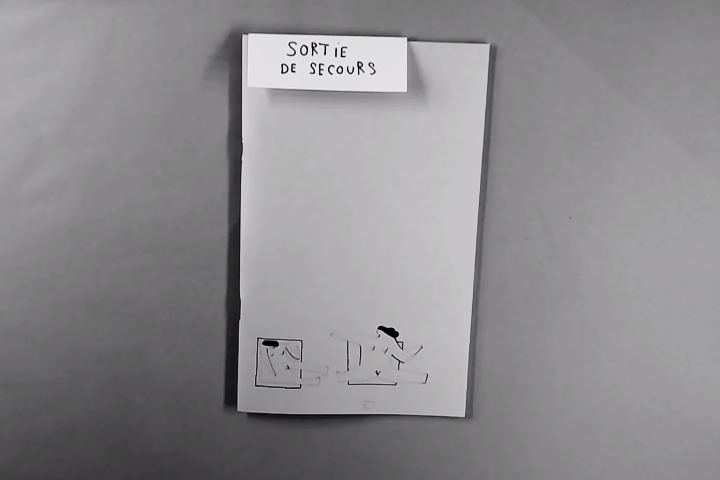 SORTIE
DE SECOURS